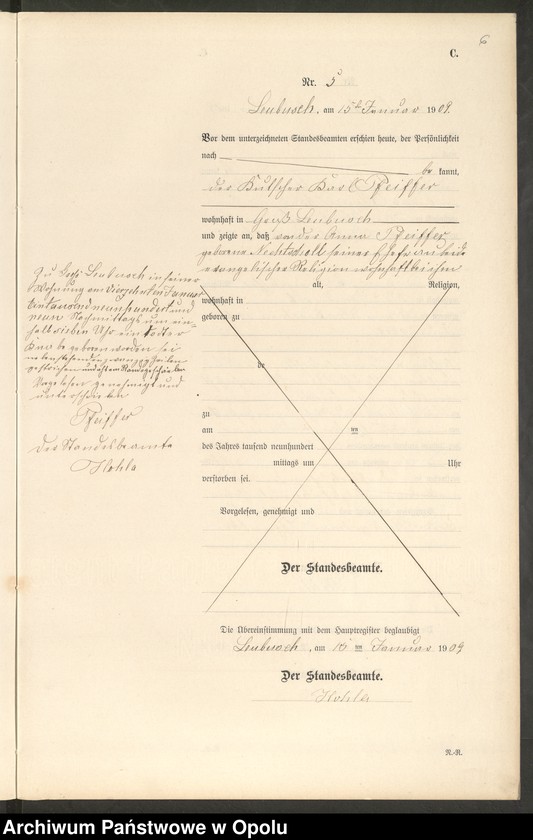 6
C.
Nr. 5
Leubusch, am 15ten Januar 1909.
Vor dem unterzeichneten Standesbeamten erschien heute, der Persönlichkeit
nach be kannt,
der Kutscher Karl Pfeiffer
wohnhaft in Groß Leubusch
und zeigte an, daß von der Anna Pfeiffer
geborene seiner Ehefrau beide
evangelischer Religion wohnhaft bei ihm
alt, Religion,
wohnhaft in
geboren zu
de
zu
am ten
des Jahres tausend neunhundert
mittags um Uhr
verstorben sei.
Vorgelesen, genehmigt und
Der Standesbeamte.
zu Groß Leubusch in seiner
Wohnung am vierzehnten Januar
Eintausendneunhundert und
neun Nachmittags um ein
halb sieben Uhr ein todter
Knabe geboren worden sei
nebenstehenden Zeilen
gestrichen
Vorgelesen genehmigt und
unterschrieben
Pfeiffer
Der Standesbeamte
Hohla
Die Übereinstimmung mit dem Hauptregister beglaubigt
Leubusch, am 16 ten Januar 1909
Der Standesbeamte.
Hohla
N.-R.
Archiwum Państwowe w Opolu